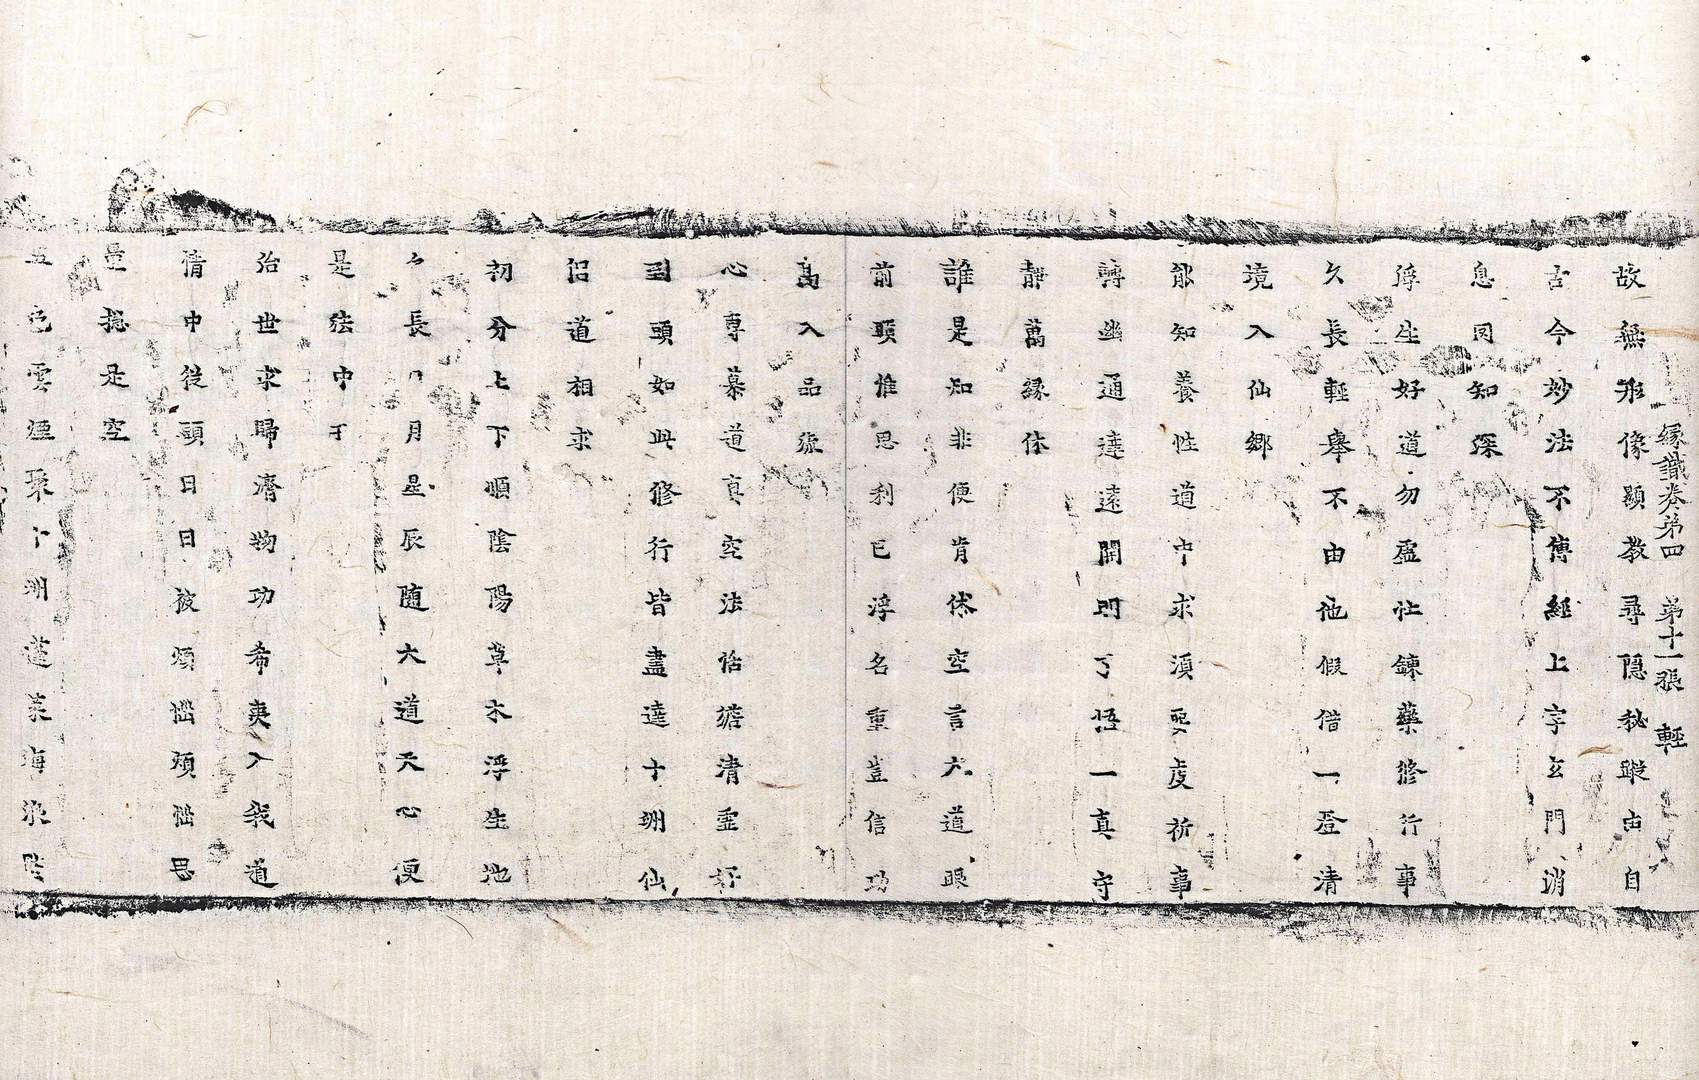 緣識卷第四 第十一張 輕
故無形像顯教尋隱秘蹤由自
古今妙法不傳經上字玄門消
息因知深
浮生好道勿盈忙鍊藥修行事
久長輕舉不由他假借一登清
境入仙鄉
能知養性道中求須要虔祈事
轉幽通達遠開門了悟一真守
靜萬緣休
誰是知非便肯休空言大道眼
前頭惟思利己浮名重豈信功
高入品流
心專慕道真空法恬澹清虛好
到頭如此修行皆盡達十洲仙
侶道相求
初分上下順陰陽草木浮生地
久長日月星辰隨大道天心便
是法中王
治世求歸濟物功希夷入我道
情中從頭日日被煩惱煩惱思
量摠是空
五色雲湮聚十洲蓬萊海浪